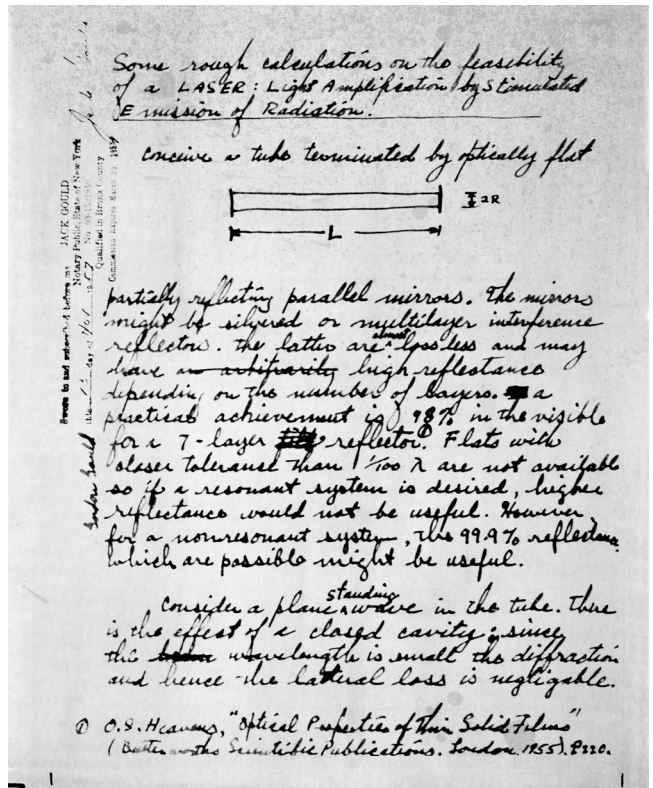 Some rough calculations on the feasibility
of a LASER: Light Amplification by Stimulated
Emission of Radiation.
conceive a tube terminated by optically flat
2R
L
partially reflecting parallel mirrors. The mirrors
might be silvered or multilayer interference
reflectors. The latter are almost lossless and may
have an arbitrarily high reflectance
depending on the number of layers. a
practical achievement is 98% in the visible
for a 7-layer reflector.① Flats with
closer tolerance than 1/100 λ are not available
so if a resonant system is desired, higher
reflectance would not be useful. However
for a nonresonant system, the 99.9% reflectances
which are possible might be useful.
Consider a plane standing wave in the tube. There
is the effect of a closed cavity; since
the wavelength is small the diffraction
and hence the lateral loss is negligable.
① O.S. Heavens, "Optical Properties of Thin Solid Films"
(Butterworths Scientific Publications. London. 1955). P220.
Sworn to and subscribed before me
this 13 day of Nov. 1957
JACK GOULD
Notary Public, State of New York
Qualified in Bronx County
Commission Expires March 30, 1959
Gordon Gould
Jack Gould